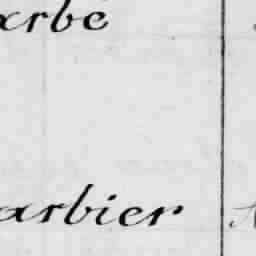 xrbé
arbier